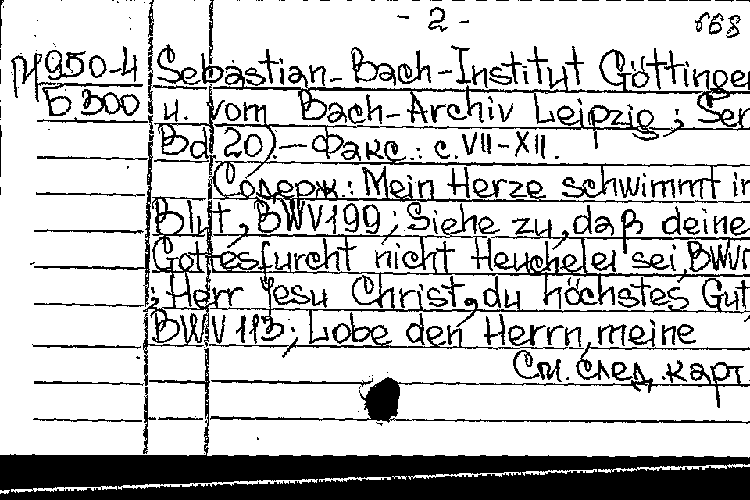 - 2 -
М950-4 Sebastian-Bach-Institut Göttingen
Б.300 u. vom Bach-Archiv Leipzig; Ser
Bd 20).—Факс.: с. VII-XII.
Содерж.: Mein Herze schwimmt in
Blut, BWV 199; Siehe zu, daß deine
Gottesfurcht nicht Heuchelei sei, BWV
; Herr Jesu Christ, du höchstes Gut
BWV 113; Lobe den Herrn, meine
См. след. карт.